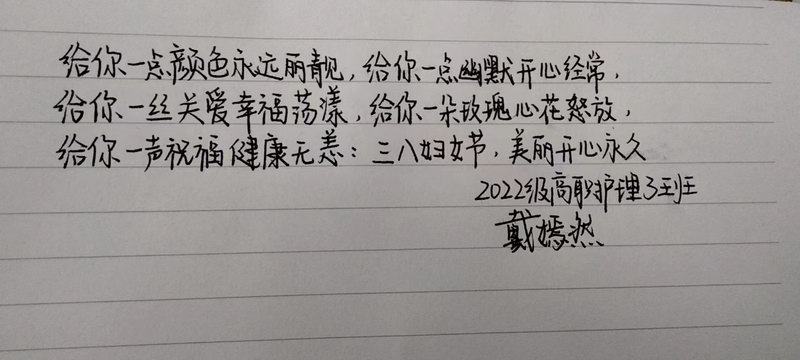 给你一点颜色永远丽靓，给你一点幽默开心经常，
给你一丝关爱幸福荡漾，给你一朵玫瑰心花怒放，
给你一声祝福健康无恙：三八妇女节，美丽开心永久
2022级高职护理3班
戴嫣然